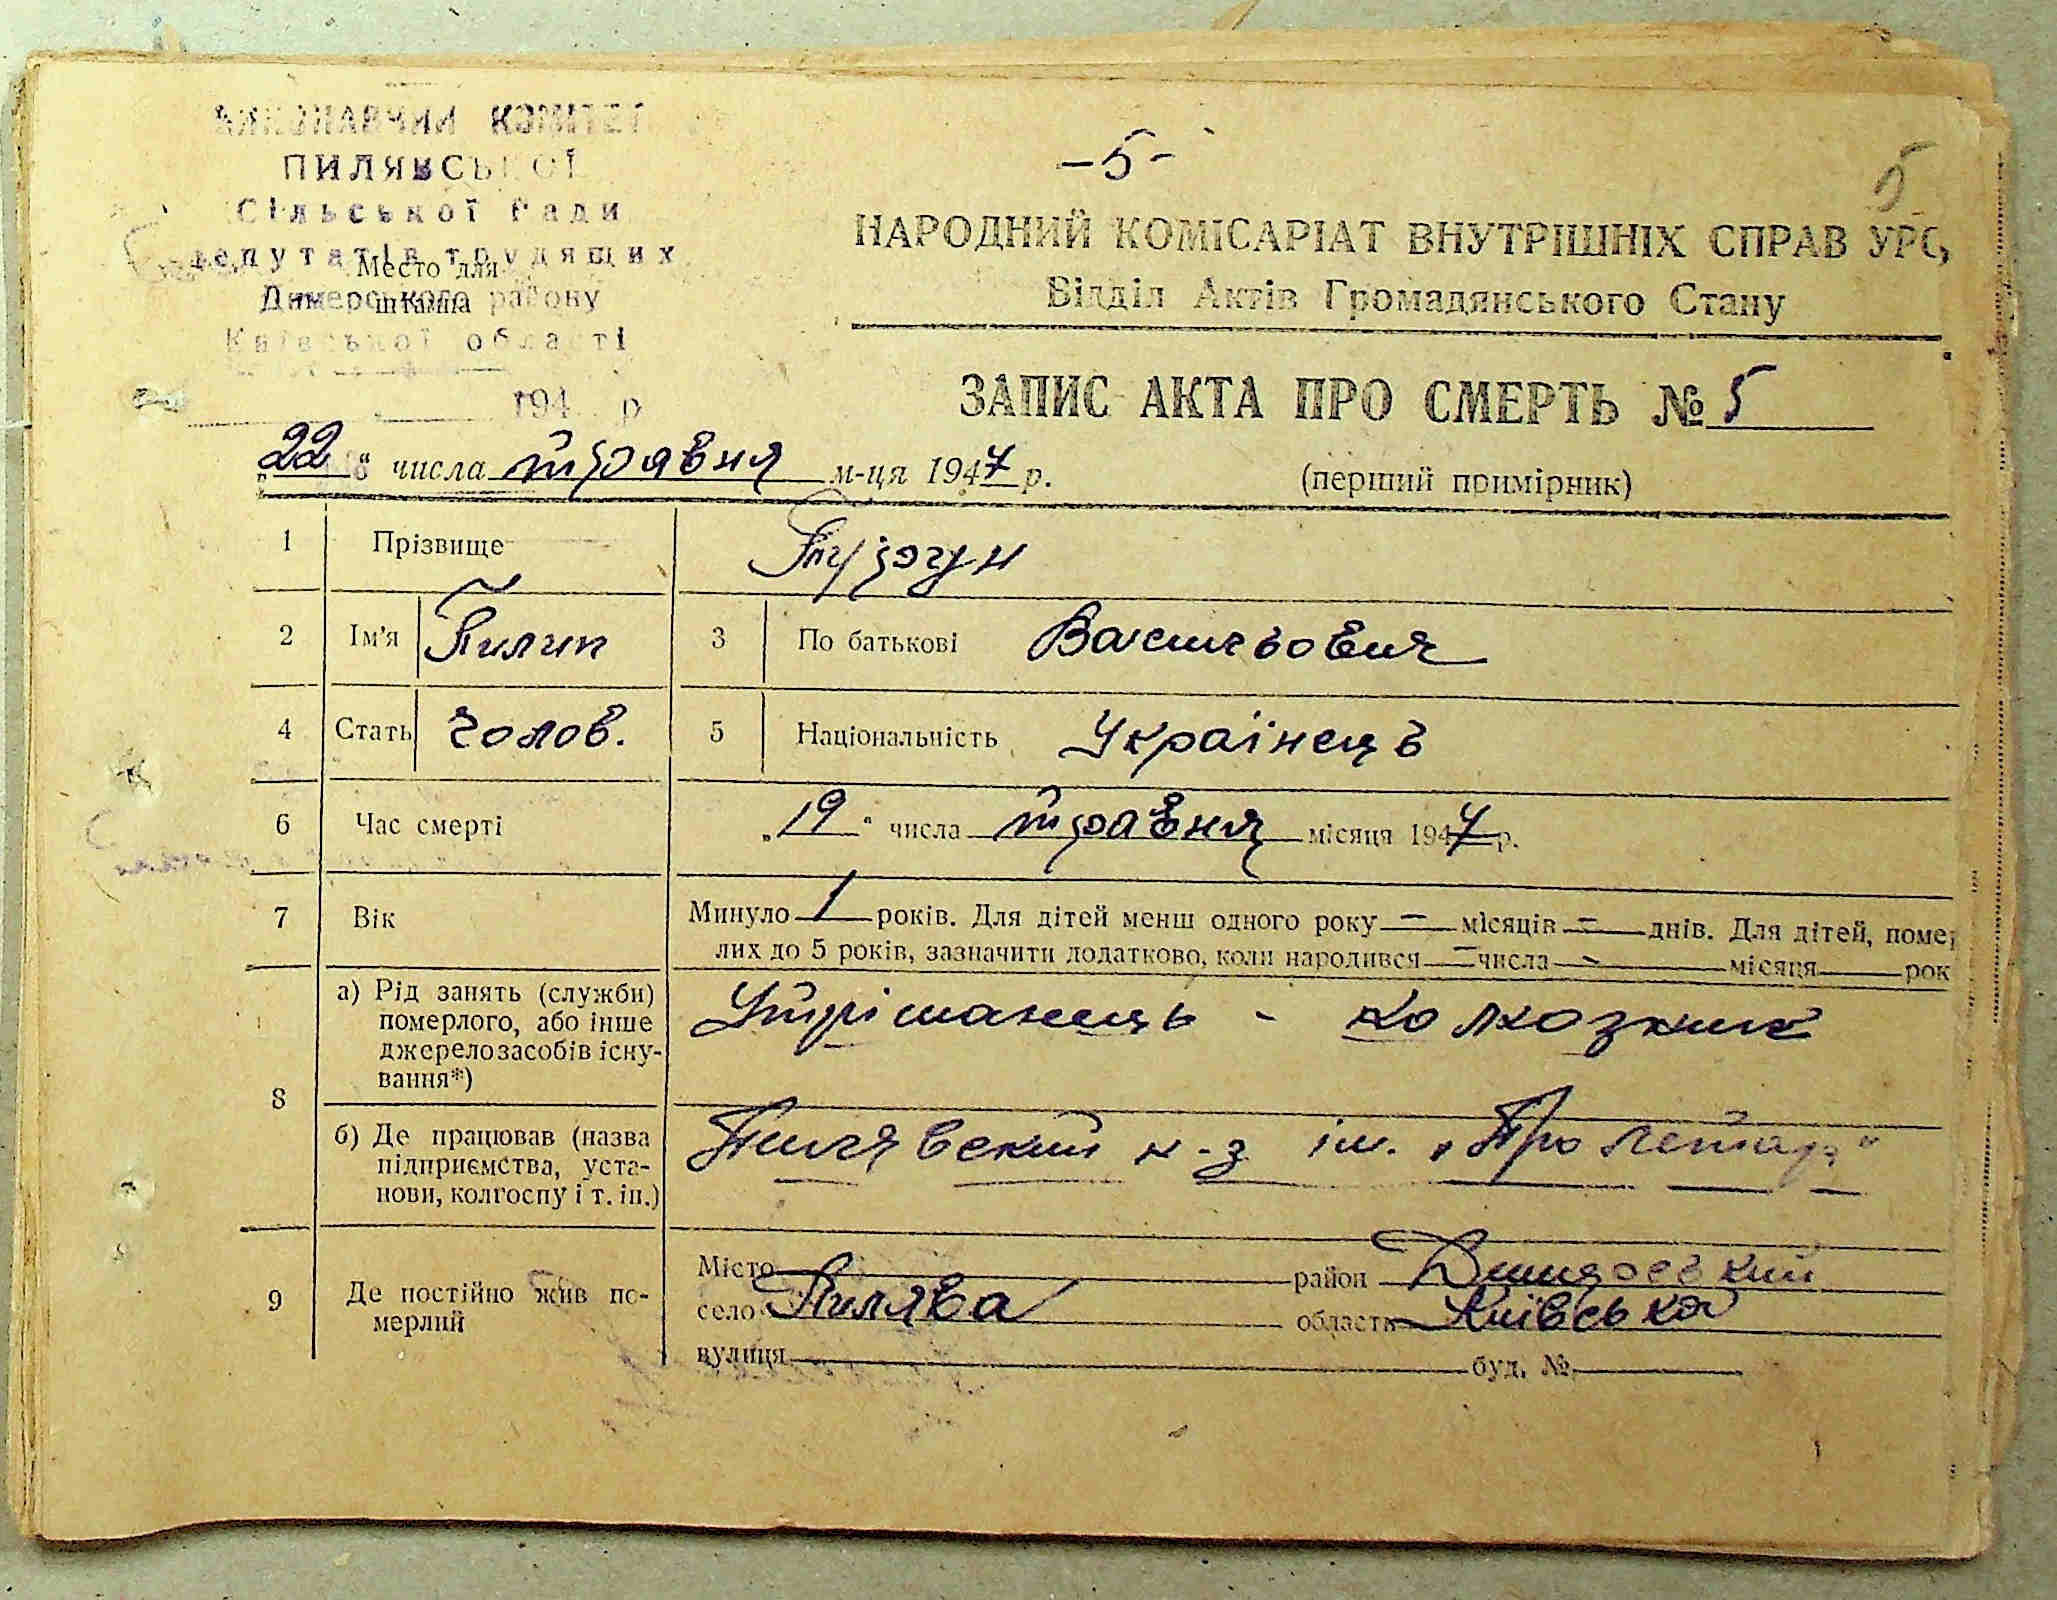 ВИКОНАВЧИЙ КОМІТЕТ
ПИЛЯВСЬКОЇ
Сільської Ради
депутатів трудящих
Место для
Димерського району
штампа
Київської області
194 р
-5-
5
НАРОДНИЙ КОМІСАРІАТ ВНУТРІШНІХ СПРАВ УРС
Відділ Актів Громадянського Стану
ЗАПИС АКТА ПРО СМЕРТЬ № 5
„22“ числа травня м-ця 1947 р.
(перший примірник)
1 Прізвище
2 Ім'я Пилип 3 По батькові Васильович
4 Стать чолов. 5 Національність Українець
6 Час смерті „19“ числа травня місяця 1947 р.
7 Вік Минуло 1 років. Для дітей менш одного року — місяців — днів. Для дітей, помер
лих до 5 років, зазначити додатково, коли народився — числа - місяця рок
8 а) Рід занять (служби)
померлого, або інше
джерело засобів існу-
вання*)
Утріманець - колхозник
б) Де працював (назва
підприємства, уста-
нови, колгоспу і т. ін.)
Пилявский к-з ім. „Пролетар"
9 Де постійно жив по-
мерлий
Місто район
село Пилява область Київська
вулиця буд. №